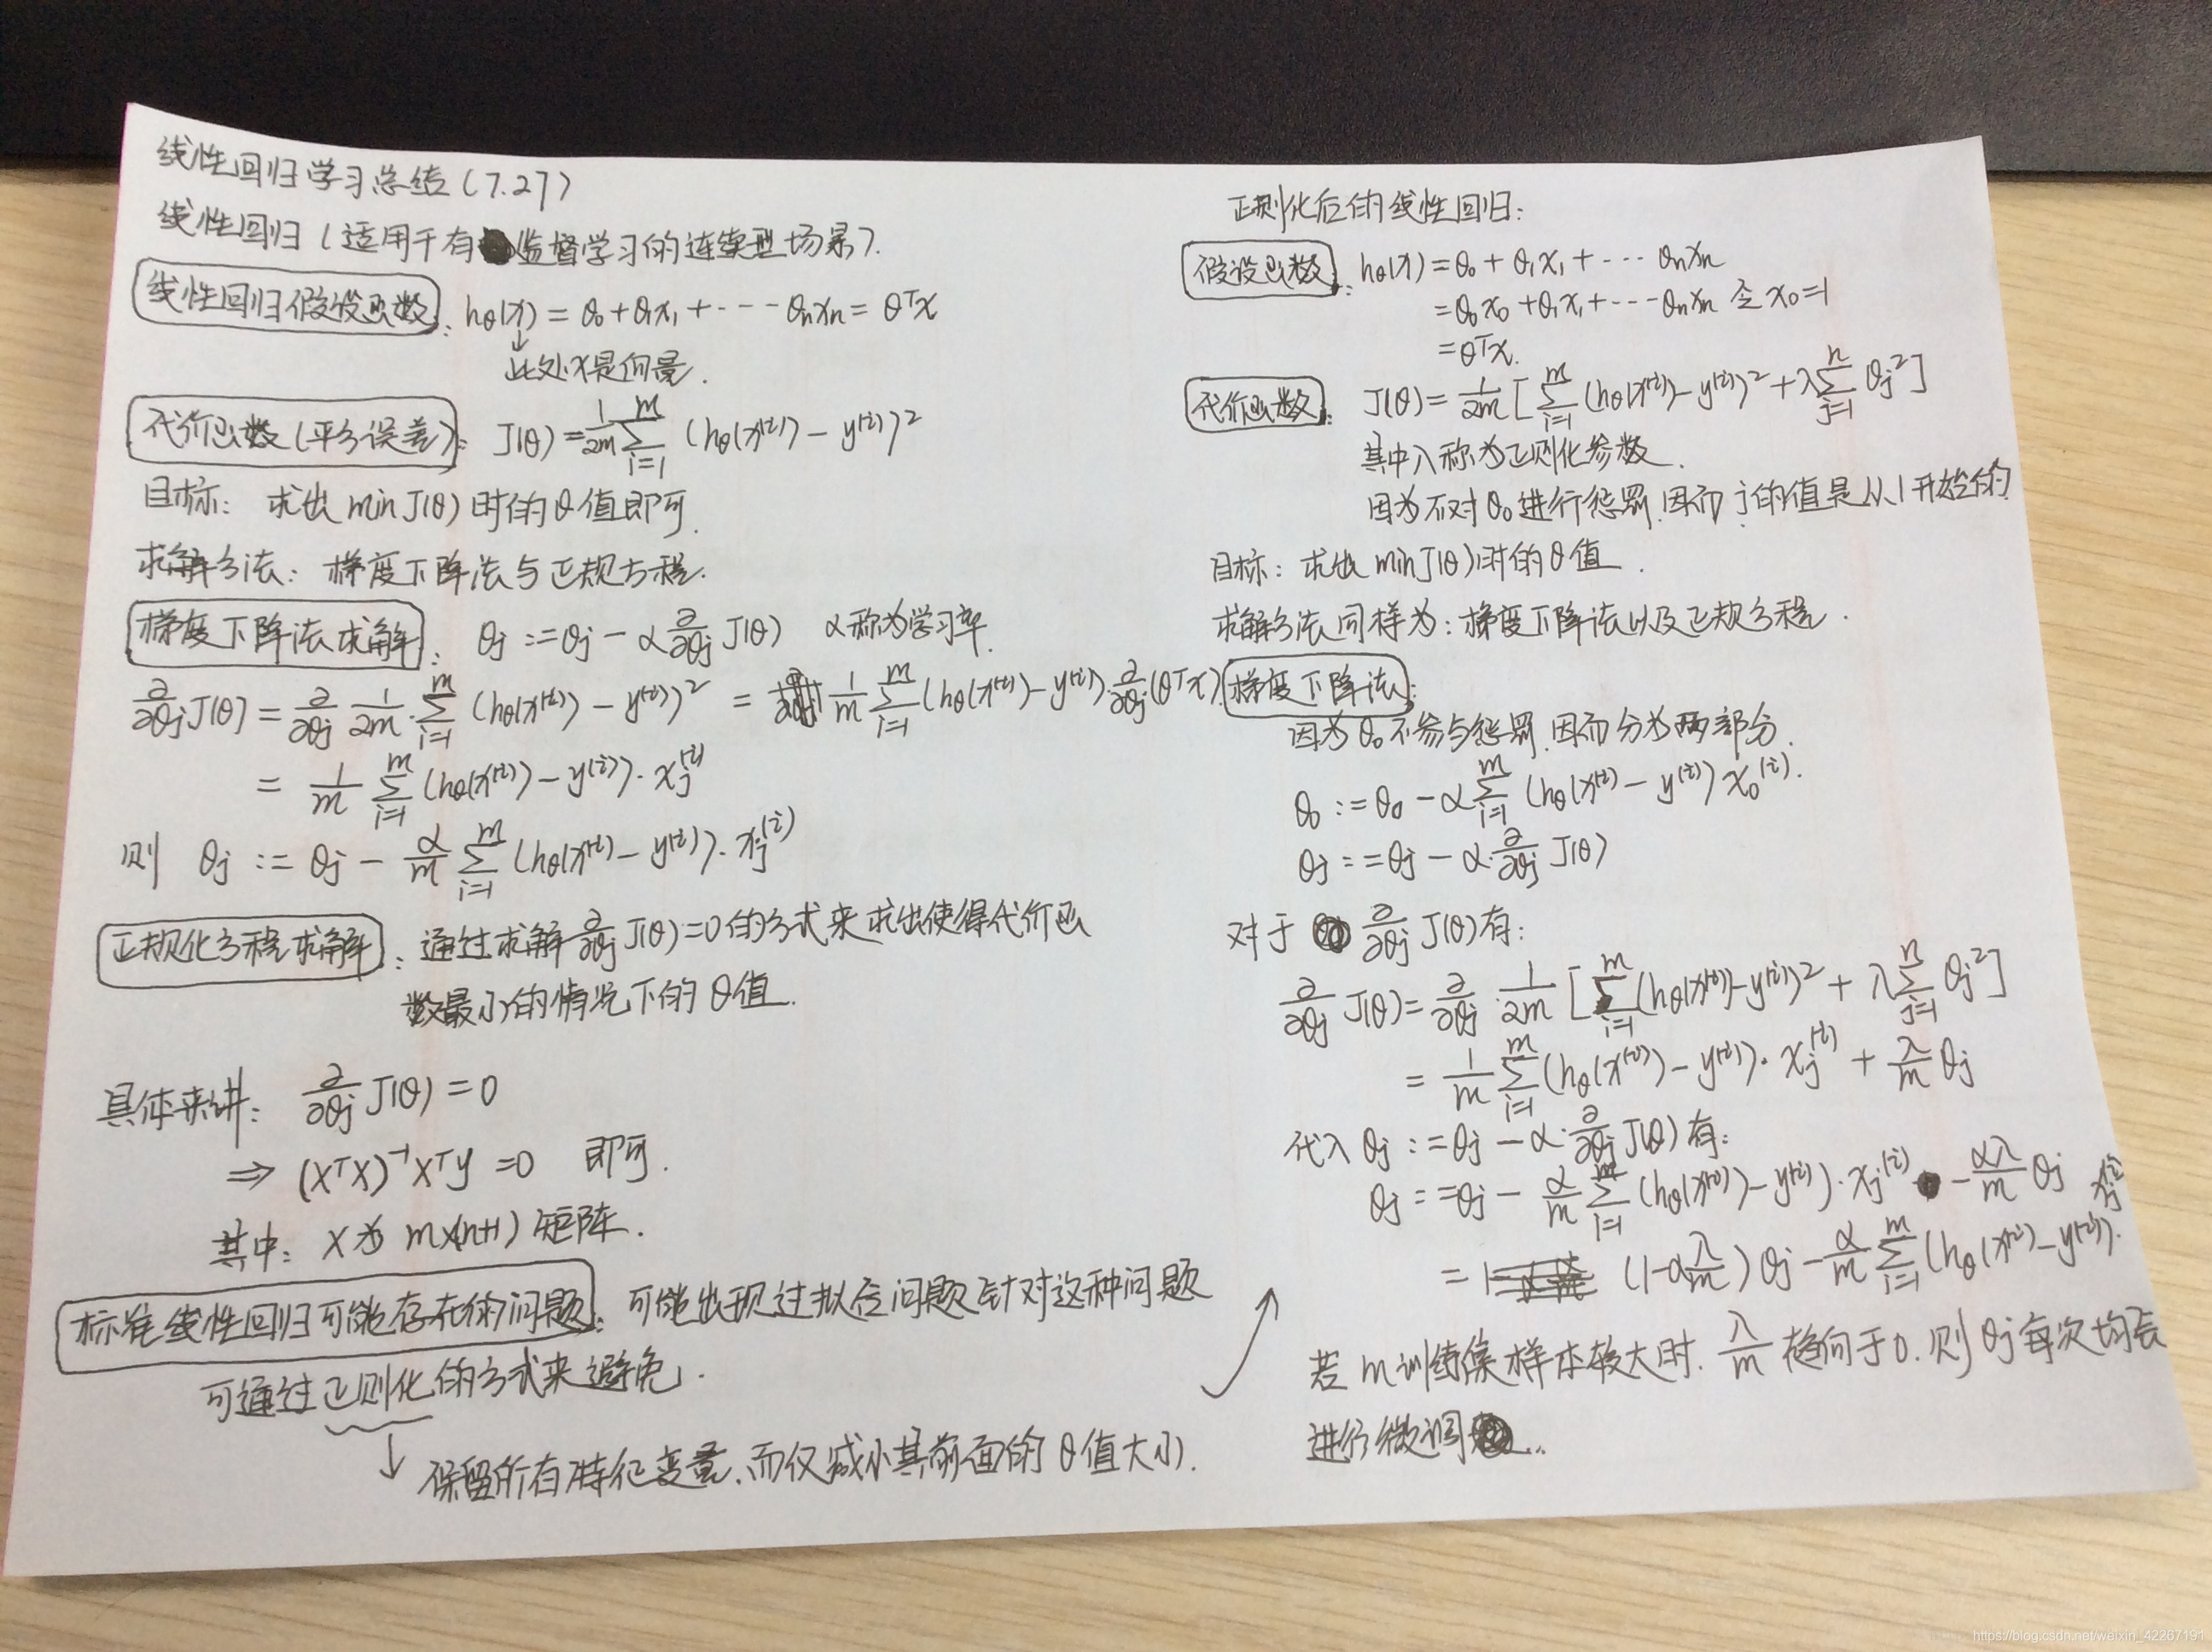 线性回归学习总结(7.27)
线性回归(适用于有监督学习的连续型场景).
线性回归假设函数: hθ(x) = θ₀ + θ₁x₁ + ··· θₙxₙ = θᵀx
↓
此处x是向量.
代价函数(平方误差): J(θ) = 1/2m ∑_{i=1}^{m} (hθ(x⁽ⁱ⁾) - y⁽ⁱ⁾)²
目标: 求出 min J(θ) 时的θ值即可.
求解方法: 梯度下降法与正规方程.
梯度下降法求解: θj := θj - α ∂/∂θj J(θ) α称为学习率.
∂/∂θj J(θ) = ∂/∂θj 1/2m · ∑_{i=1}^{m} (hθ(x⁽ⁱ⁾) - y⁽ⁱ⁾)² = 1/m ∑_{i=1}^{m} (hθ(x⁽ⁱ⁾) - y⁽ⁱ⁾) · ∂/∂θj (θᵀx)
= 1/m ∑_{i=1}^{m} (hθ(x⁽ⁱ⁾) - y⁽ⁱ⁾) · xj⁽ⁱ⁾
则 θj := θj - α/m ∑_{i=1}^{m} (hθ(x⁽ⁱ⁾) - y⁽ⁱ⁾) · xj⁽ⁱ⁾
正规化方程求解: 通过求解 ∂/∂θj J(θ) = 0 的方式来求出使得代价函
数最小的情况下的θ值.
具体来讲: ∂/∂θj J(θ) = 0
⇒ (XᵀX)⁻¹Xᵀy = 0 即可.
其中: X为 m×(n+1) 矩阵.
标准线性回归可能存在的问题: 可能出现过拟合问题针对这种问题
可通过正则化的方式来避免.
↓ 保留所有特征变量,而仅减小其前面的θ值大小.
正则化后的线性回归:
假设函数: hθ(x) = θ₀ + θ₁x₁ + ··· θₙxₙ
= θ₀x₀ + θ₁x₁ + ··· θₙxₙ 令 x₀=1
= θᵀx.
代价函数: J(θ) = 1/2m [∑_{i=1}^{m} (hθ(x⁽ⁱ⁾) - y⁽ⁱ⁾)² + λ∑_{j=1}^{n} θj²]
其中λ称为正则化参数.
因为不对θ₀进行惩罚,因而j的值是从1开始的
目标: 求出 min J(θ)时的θ值.
求解方法同样为: 梯度下降法以及正规方程.
梯度下降法:
因为θ₀不参与惩罚,因而分为两部分.
θ₀ := θ₀ - α∑_{i=1}^{m} (hθ(x⁽ⁱ⁾) - y⁽ⁱ⁾) x₀⁽ⁱ⁾.
θj := θj - α · ∂/∂θj J(θ)
对于 ∂/∂θj J(θ)有:
∂/∂θj J(θ) = ∂/∂θj · 1/2m [∑_{i=1}^{m} (hθ(x⁽ⁱ⁾) - y⁽ⁱ⁾)² + λ∑_{j=1}^{n} θj²]
= 1/m ∑_{i=1}^{m} (hθ(x⁽ⁱ⁾) - y⁽ⁱ⁾) · xj⁽ⁱ⁾ + λ/m θj
代入 θj := θj - α · ∂/∂θj J(θ) 有:
θj := θj - α/m ∑_{i=1}^{m} (hθ(x⁽ⁱ⁾) - y⁽ⁱ⁾) · xj⁽ⁱ⁾ - αλ/m θj
= (1-α λ/m) θj - α/m ∑_{i=1}^{m} (hθ(x⁽ⁱ⁾) - y⁽ⁱ⁾) · xj⁽ⁱ⁾
若m训练集样本较大时, λ/m 趋向于0. 则θj每次均会
进行微调..
https://blog.csdn.net/weixin_42267191